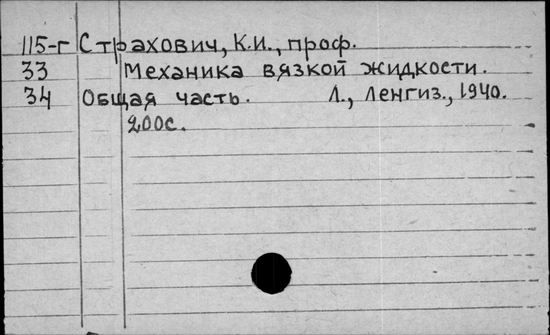 115-г Страхович, К.И., проф.
33 Механика вязкой жидкости.
34 Общая часть. Л., Ленгиз., 1940.
200с.